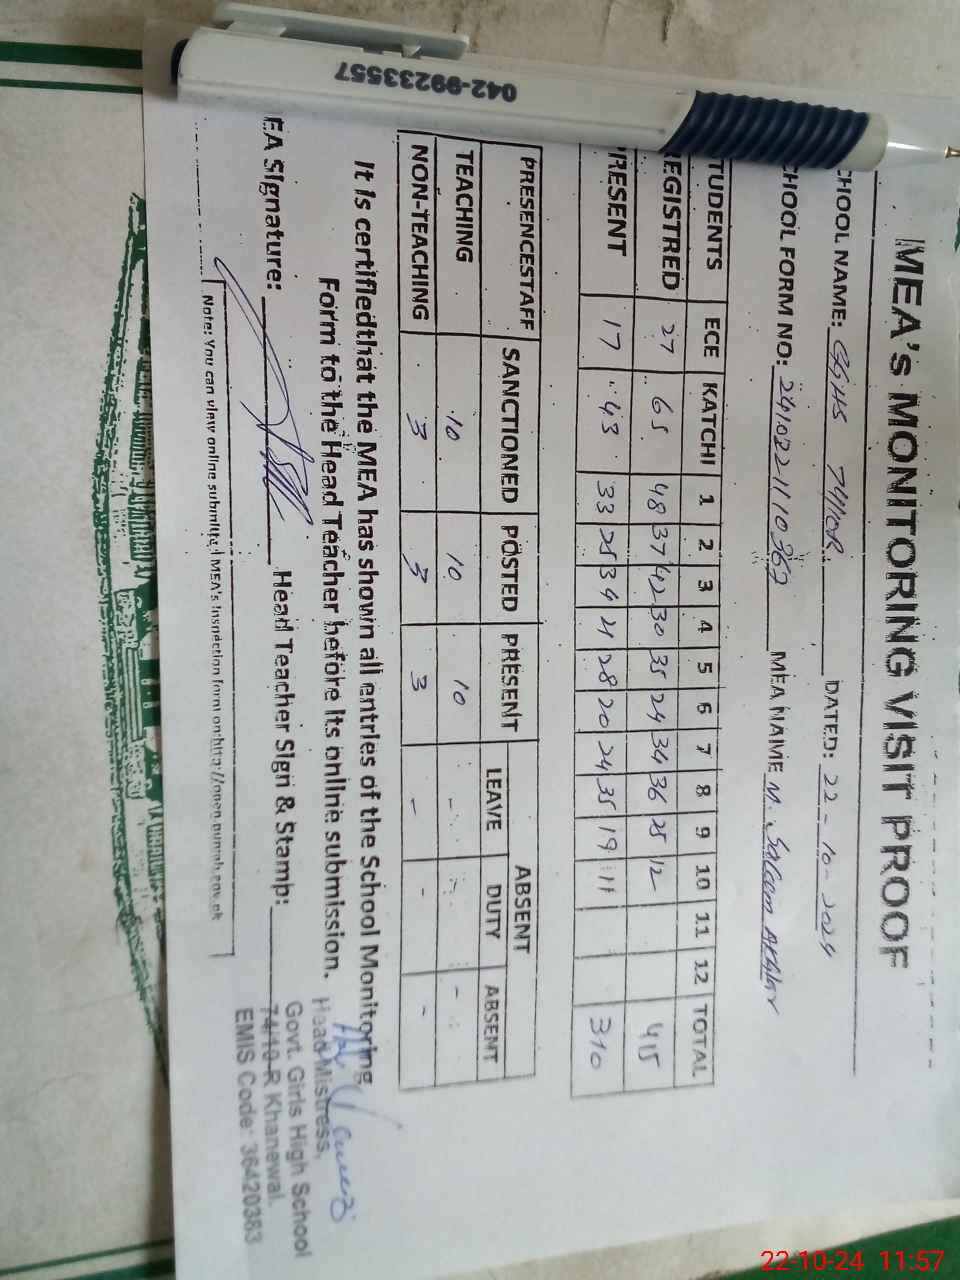 042-99233557
MEA's MONITORING VISIT PROOF
CHOOL NAME: GGHS 74/10R. DATED: 22-10-2024
CHOOL FORM NO: 24102211 0367 MEA NAME M. Saleem Akhtar
TUDENTS ECE KATCHI 1 2 3 4 5 6 7 8 9 10 11 12 TOTAL
EGISTRED 27 65 48 37 42 30 35 24 34 36 25 12 415
PRESENT 17 43 33 25 34 21 28 20 24 35 19 11 310
PRESENCESTAFF SANCTIONED POSTED PRESENT ABSENT
LEAVE DUTY ABSENT
TEACHING 10 10 10 - - -
NON-TEACHING 3 3 3 - - -
It Is certifiedthat the MEA has shown all entries of the School Monitoring
Form to the Head Teacher before Its online submission.
EA Signature: Head Teacher Sign & Stamp:
Head Mistress,
Govt. Girls High School
74/10-R Khanewal.
EMIS Code: 36420383
Note: You can view online submitted MEA's Inspection form on:http://open.punjab.gov.pk
22-10-24 11:57